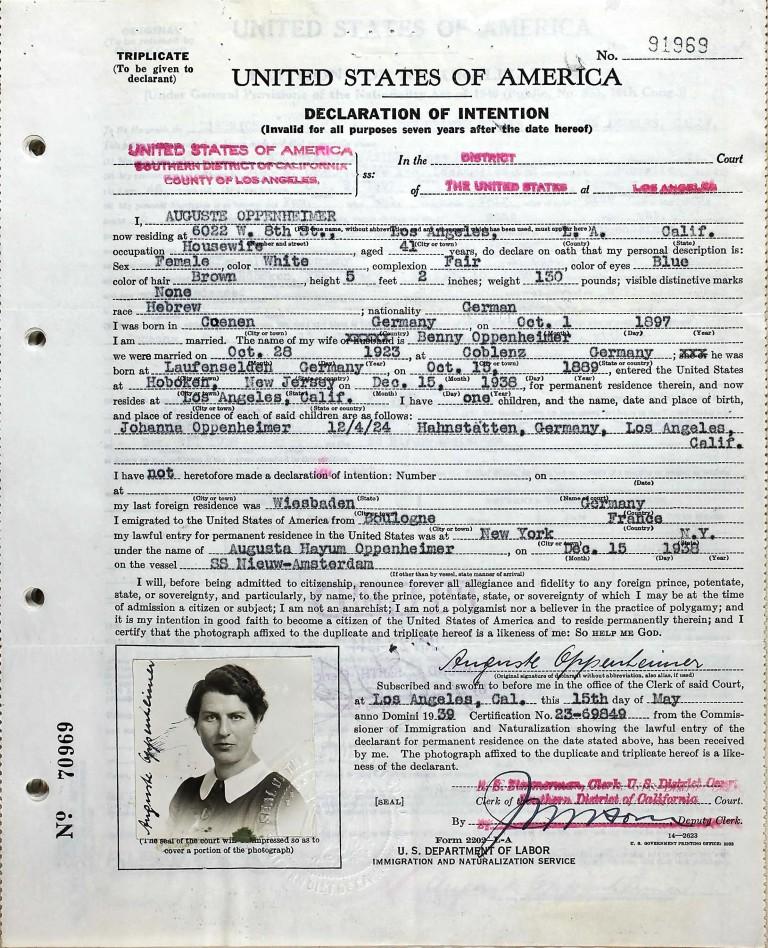 TRIPLICATE
(To be given to
declarant)
No. 91969
UNITED STATES OF AMERICA
DECLARATION OF INTENTION
(Invalid for all purposes seven years after the date hereof)
UNITED STATES OF AMERICA
SOUTHERN DISTRICT OF CALIFORNIA
COUNTY OF LOS ANGELES.
ss:
In the DISTRICT Court
of THE UNITED STATES at LOS ANGELES
I, AUGUSTE OPPENHEIMER
now residing at 6022 W. 8th St., Los Angeles, L. A. Calif.
(Number and street) (City or town) (County) (State)
occupation Housewife, aged 41 years, do declare on oath that my personal description is:
Sex Female, color White, complexion Fair, color of eyes Blue
color of hair Brown, height 5 feet 2 inches; weight 130 pounds; visible distinctive marks
None
race Hebrew; nationality German
I was born in Coenen Germany, on Oct. 1 1897
(City or town) (Country) (Month) (Day) (Year)
I am married. The name of my wife or husband is Benny Oppenheimer
we were married on Oct. 28 1923, at Coblenz Germany; xxx he was
born at Laufenselden Germany, on Oct. 15, 1889, entered the United States
at Hoboken, New Jersey on Dec. 15, 1938, for permanent residence therein, and now
resides at Los Angeles, Calif. I have one children, and the name, date and place of birth,
(City or town) (State or country)
and place of residence of each of said children are as follows:
Johanna Oppenheimer 12/4/24 Hahnstätten, Germany, Los Angeles,
Calif.
I have not heretofore made a declaration of intention: Number, on
(Date)
at
(City or town) (State) (Name of court)
my last foreign residence was Wiesbaden Germany
(City or town) (Country)
I emigrated to the United States of America from Boulogne France
(City or town) (Country)
my lawful entry for permanent residence in the United States was at New York N.Y.
(City or town) (State)
under the name of Augusta Hayum Oppenheimer, on Dec. 15 1938
(Month) (Day) (Year)
on the vessel SS Nieuw-Amsterdam
(If other than by vessel, state manner of arrival)
I will, before being admitted to citizenship, renounce forever all allegiance and fidelity to any foreign prince, potentate,
state, or sovereignty, and particularly, by name, to the prince, potentate, state, or sovereignty of which I may be at the time
of admission a citizen or subject; I am not an anarchist; I am not a polygamist nor a believer in the practice of polygamy; and
it is my intention in good faith to become a citizen of the United States of America and to reside permanently therein; and I
certify that the photograph affixed to the duplicate and triplicate hereof is a likeness of me: SO HELP ME GOD.
Auguste Oppenheimer
(Original signature of declarant without abbreviation, also alias, if used)
Subscribed and sworn to before me in the office of the Clerk of said Court,
at Los Angeles, Cal. this 15th day of May
anno Domini 1939 Certification No. 23-69849 from the Commis-
sioner of Immigration and Naturalization showing the lawful entry of the
declarant for permanent residence on the date stated above, has been received
by me. The photograph affixed to the duplicate and triplicate hereof is a like-
ness of the declarant.
R. S. Zimmerman, Clerk U. S. District Court
[SEAL]
Clerk of Southern District of California Court.
By Deputy Clerk.
Form 2202-L-A
14-2623
U. S. GOVERNMENT PRINTING OFFICE:
U. S. DEPARTMENT OF LABOR
IMMIGRATION AND NATURALIZATION SERVICE
Auguste Oppenheimer
(The seal of the court will be impressed so as to
cover a portion of the photograph)
No 70969